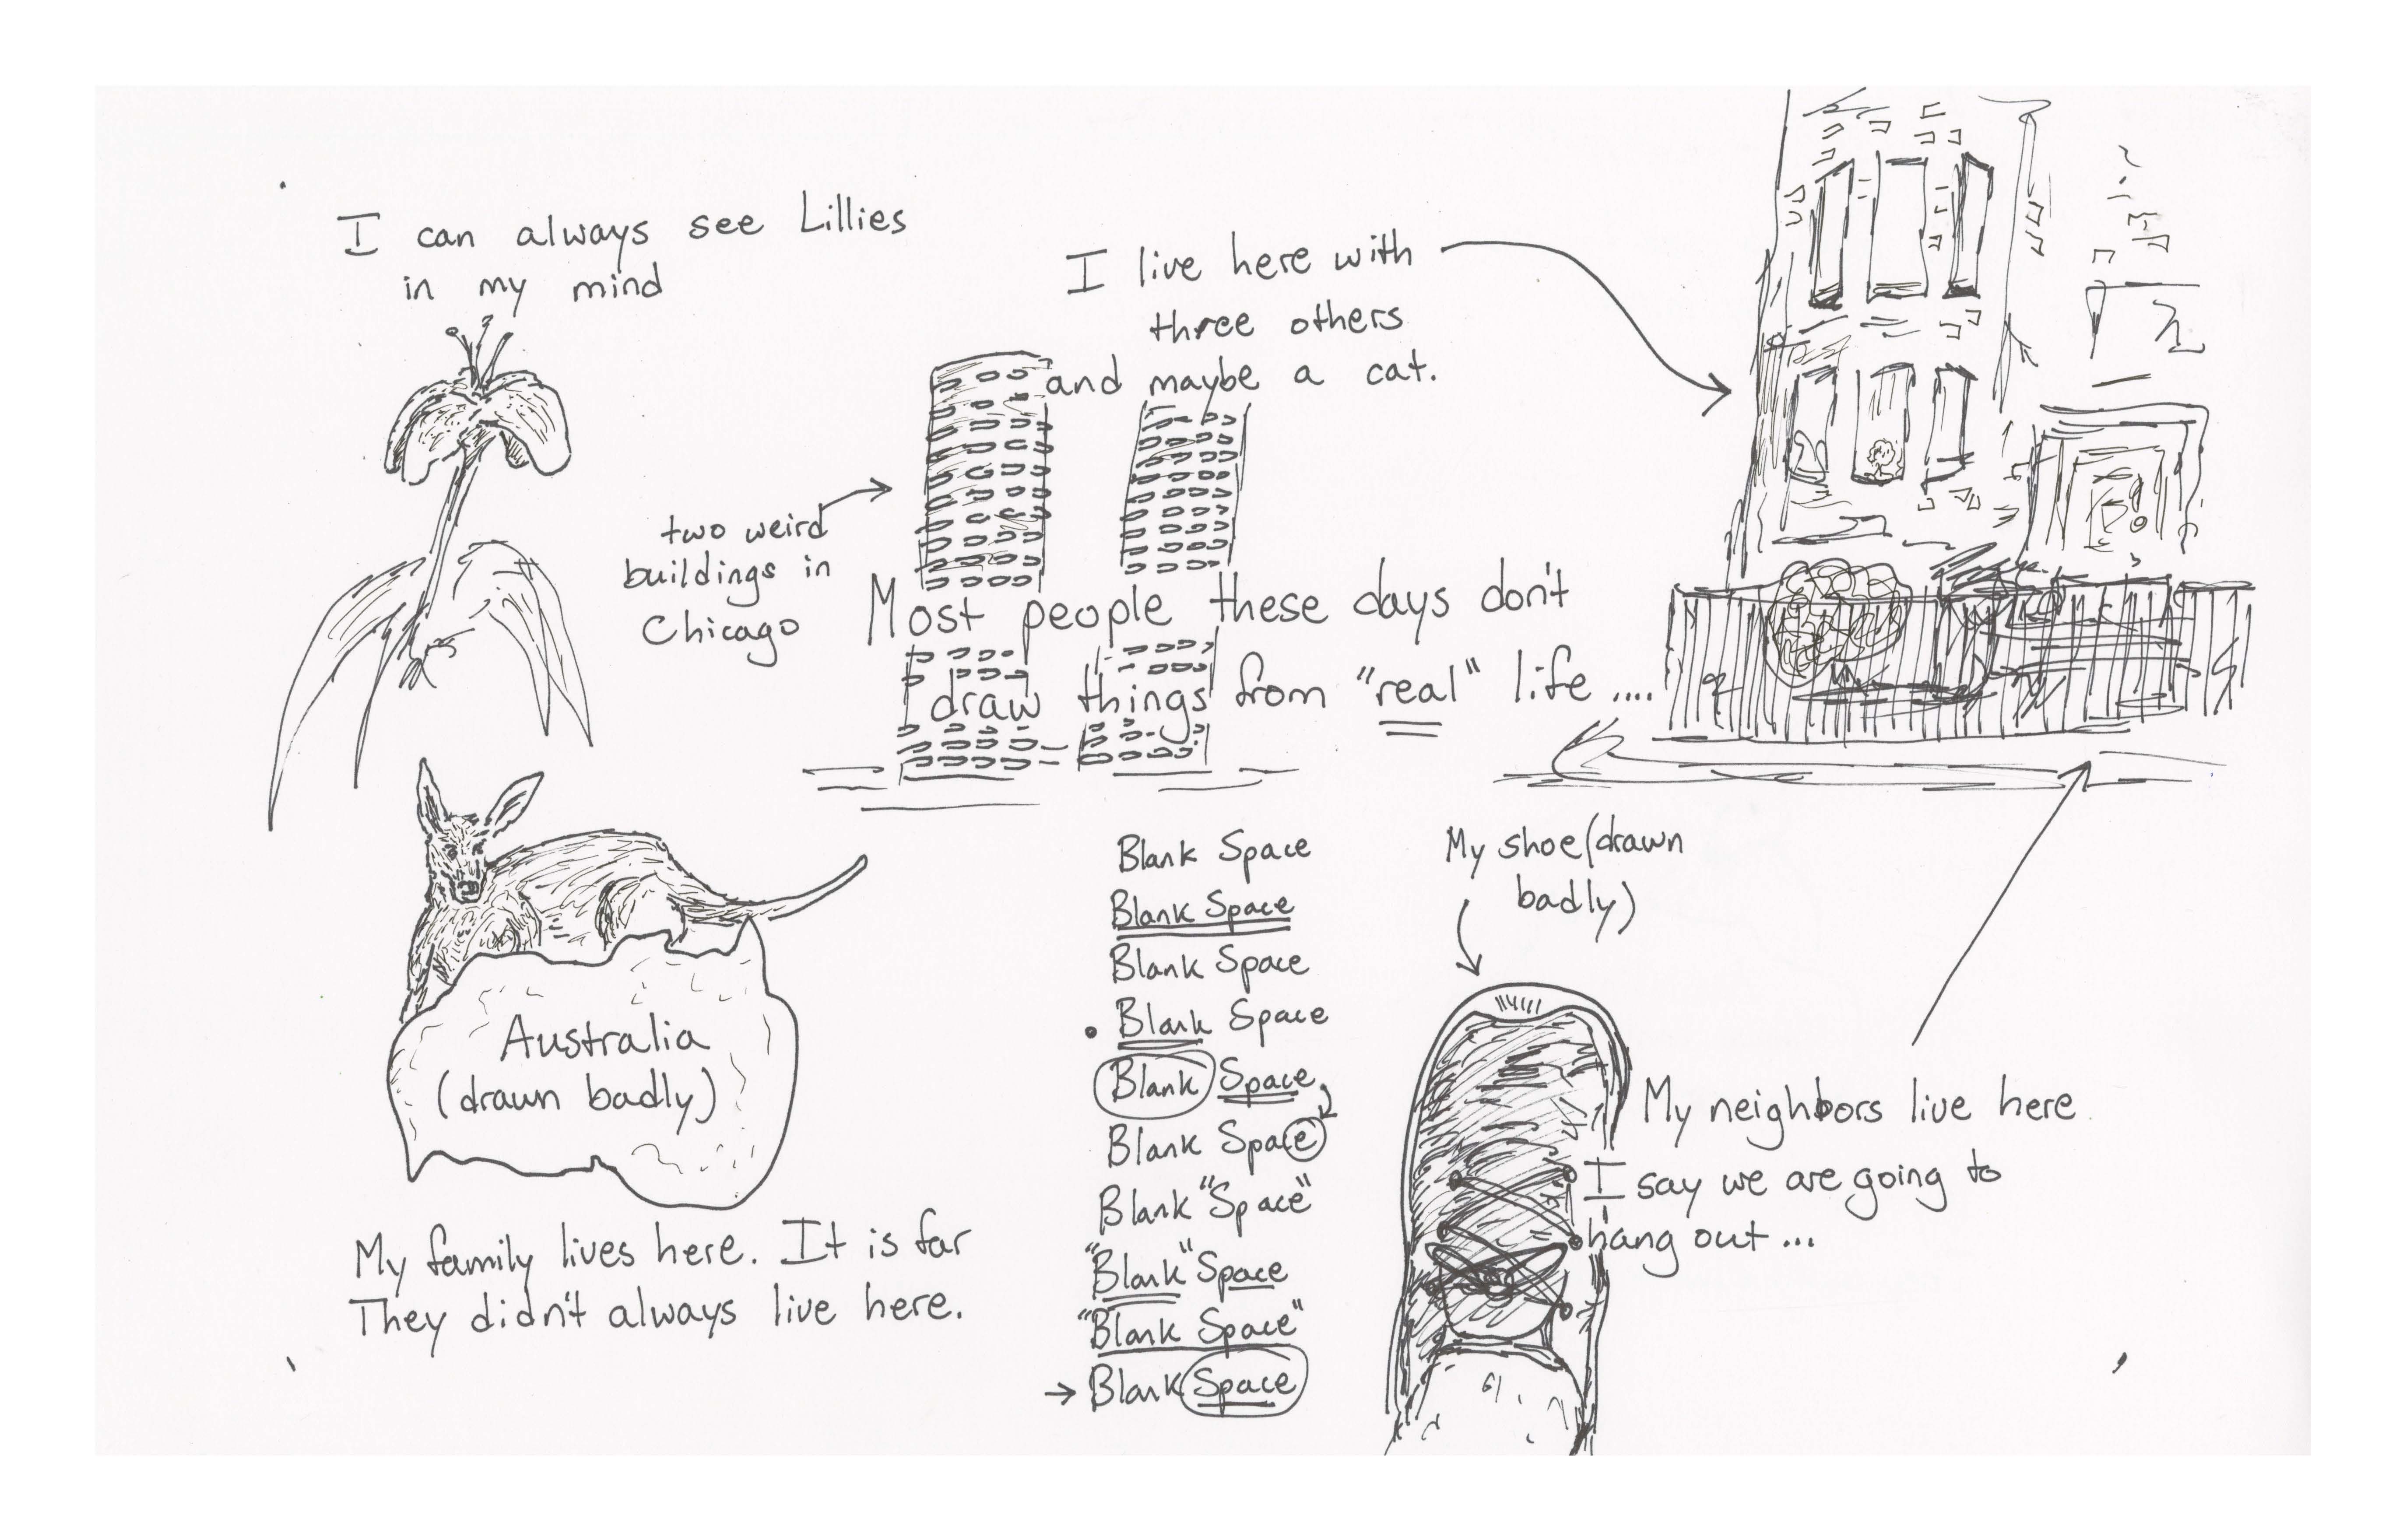 I can always see Lillies
in my mind
I live here with
three others
and maybe a cat.
two weird
buildings in
Chicago
Most people these days don't
draw things from "real" life ....
Australia
(drawn badly)
My family lives here. It is far
They didn't always live here.
Blank Space
Blank Space
Blank Space
• Blank Space
Blank Space
Blank Space
Blank "Space"
"Blank" Space
"Blank Space"
→ Blank Space
My shoe (drawn
badly)
My neighbors live here
I say we are going to
hang out ...